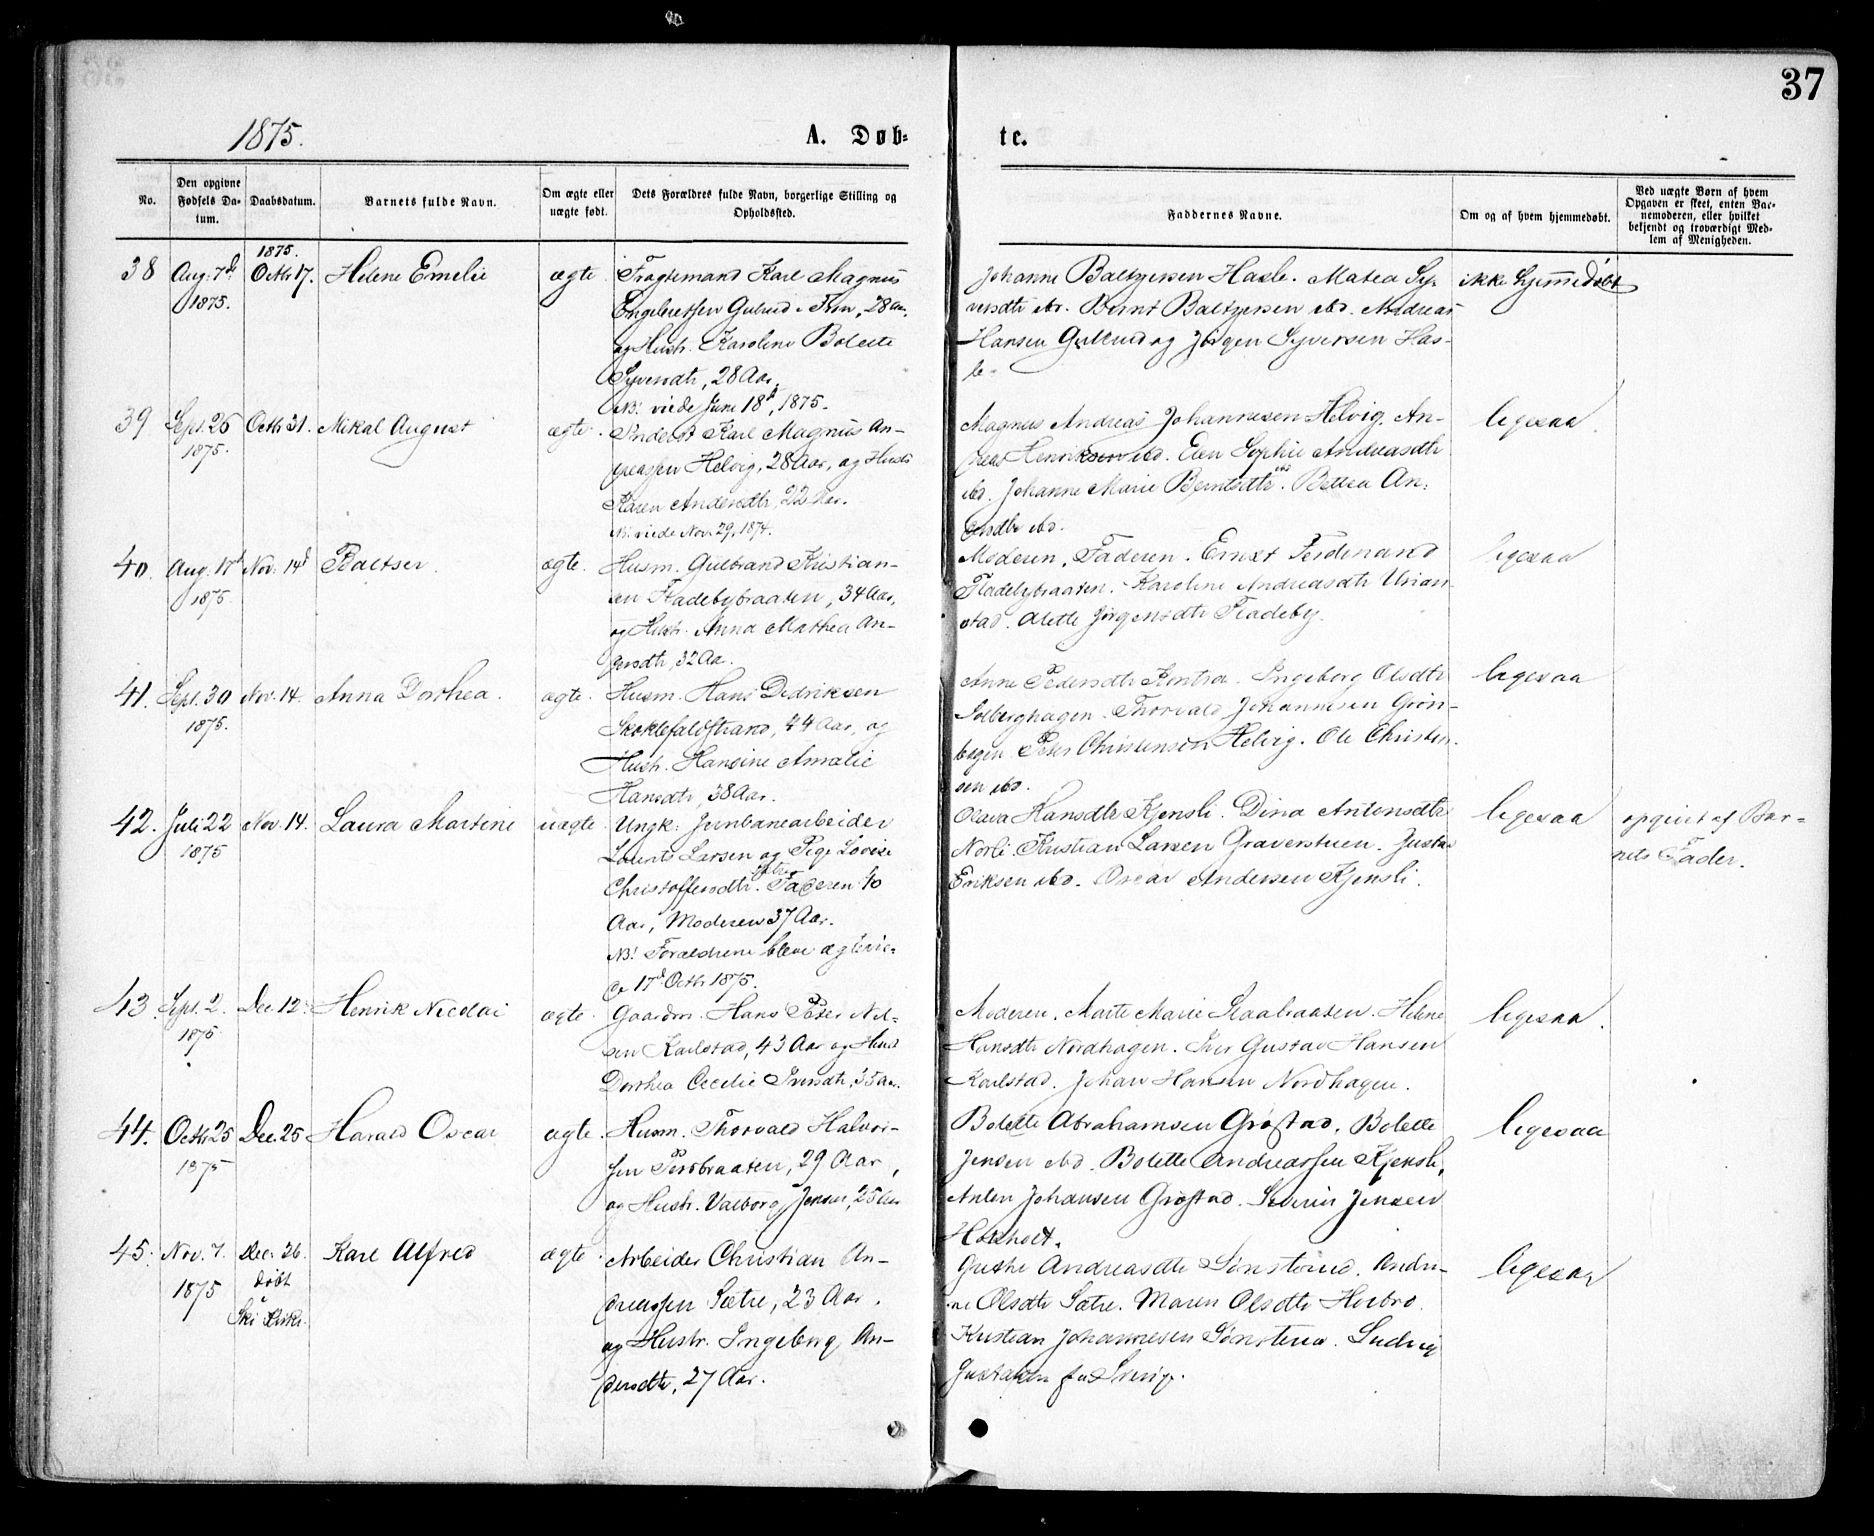 37
1875.
A. Døb=
te.
No.
Den opgivne Fødsels Da-tum.
Daabsdatum.
Barnets fulde Navn.
Om ægte eller uægte født.
Dets Forældres fulde Navn, borgerlige Stilling og Opholdsfted.
Faddernes Navne.
Om og af hvem hjemmedøbt.
Ved uægte Børn af hvem Opgaven er skeet, enten Bar-nemoderen, eller hvilket bekjendt og troværdigt Med-lem af Menigheden.
1875.
38 Aug. 7d Octbr 17. Helene Emelie ægte Fragtemand Karl Magnus
1875.
Engebretsen Gulrud, 28 Aar,
og Hustr. Karoline Bolette
Syversdtr, 28 Aar.
NB! viede Juni 18d, 1875.
Johanne Baltzersen Hasle. Matea Sy-
versdtr ibd. Bernt Baltzersen ibd. Andreas
Hansen Gulrud og Jørgen Syversen Has-
le.
ikke hjemmedøbt
39 Sept. 26 Octbr 31. Mikal August ægte. Inderst Karl Magnus An-
1875.
dreassen Helvig, 28 Aar, og Hustr
Karen Andersdtr, 22 Aar.
NB. viede Nov. 29, 1874.
Magnus Andreas Johannesen Helvig. An-
dreas Henriksen ibd. Elen Sophie Andreasdtr
ibd. Johanne Marie Berntsdtr ibd. Bettea An-
dersdtr ibd.
ligesaa.
40. Aug. 17d Nov. 14d Baltser. ægte. Husm. Gulbrand Kristian-
1875.
sen Fladebybraaten, 34 Aar,
og Hustr. Anna Mathea An-
dersdtr, 32 Aar.
Moderen, Faderen. Ernst Ferdinand
Fladebybraaten. Karoline Andreasdtr Unian-
stad. Alette Jørgensdtr Fladeby.
ligesaa
41. Sept. 30 Nov. 14. Anna Dorthea. ægte. Husm. Hans Dedriksen
1875.
Skoklefaldstrand, 44 Aar, og
Hustr. Hansine Amalie
Hansdtr, 38 Aar.
Anne Pedersdtr Kontra. Ingeborg Olsdtr
Solberghagen. Thorvald Johannesen Grøn-
hagen Peter Christensen Helvig. Ole Christen-
sen ibd.
ligesaa
42. Juli 22 Nov. 14. Laura Martine uægte. Ungk. Jernbanearbeider
1875
Laurits Larsen og Pige Lovise
Christoffersdtr. Faderen 40
Aar, Moderen 37 Aar.
NB! Forældrene bleve ægtevie-
de 17d Octbr 1875.
Olava Hansdtr Kjensli. Dina Antonsdtr
Norli. Kristian Larsen Graverstuen. Gustav
Eriksen ibd. Oscar Andersen Kjensli.
ligesaa
opgivet af Bar-
nets Fader.
43. Sept. 2. Dec. 12. Henrik Nicolai ægte. Gaardm. Hans Peter Nil-
1875.
sen Karlstad, 43 Aar og Hustr
Dorthea Cecilie Iversdtr, 35 Aar.
Moderen. Marte Marie Staabraaten. Helene
Hansdtr Nordhagen. Iver Gustav Hansen
Karlstad. Johan Hansen Nordhagen.
ligesaa.
44. Octbr 25 Dec. 25 Harald Oscar ægte. Husm. Thorvald Halvor-
1875
sen Persbraaten, 29 Aar,
og Hustr. Valborg Jensen, 25 Aar
Bolette Abrahamsen Grøstad. Bolette
Jensen ibd. Bolette Andreassen Kjensli,
Anten Johansen Grøstad. Severin Jensen
Haxholt.
ligesaa
45. Nov. 7. Dec. 26. Karl Alfred ægte. Arbeider Christian An-
1875
døbt
i
Ski Kirke.
dreassen Sætre, 23 Aar.
og Hustr. Ingeborg An-
dersdtr, 27 Aar.
Andreasdtr Sønsterud. Andri-
ne Olsdtr Sætre. Maren Olsdtr Herbro.
Kristian Johannesen Sønsterud. Ludvig
Gustavsen fra Sverig.
ligesaa